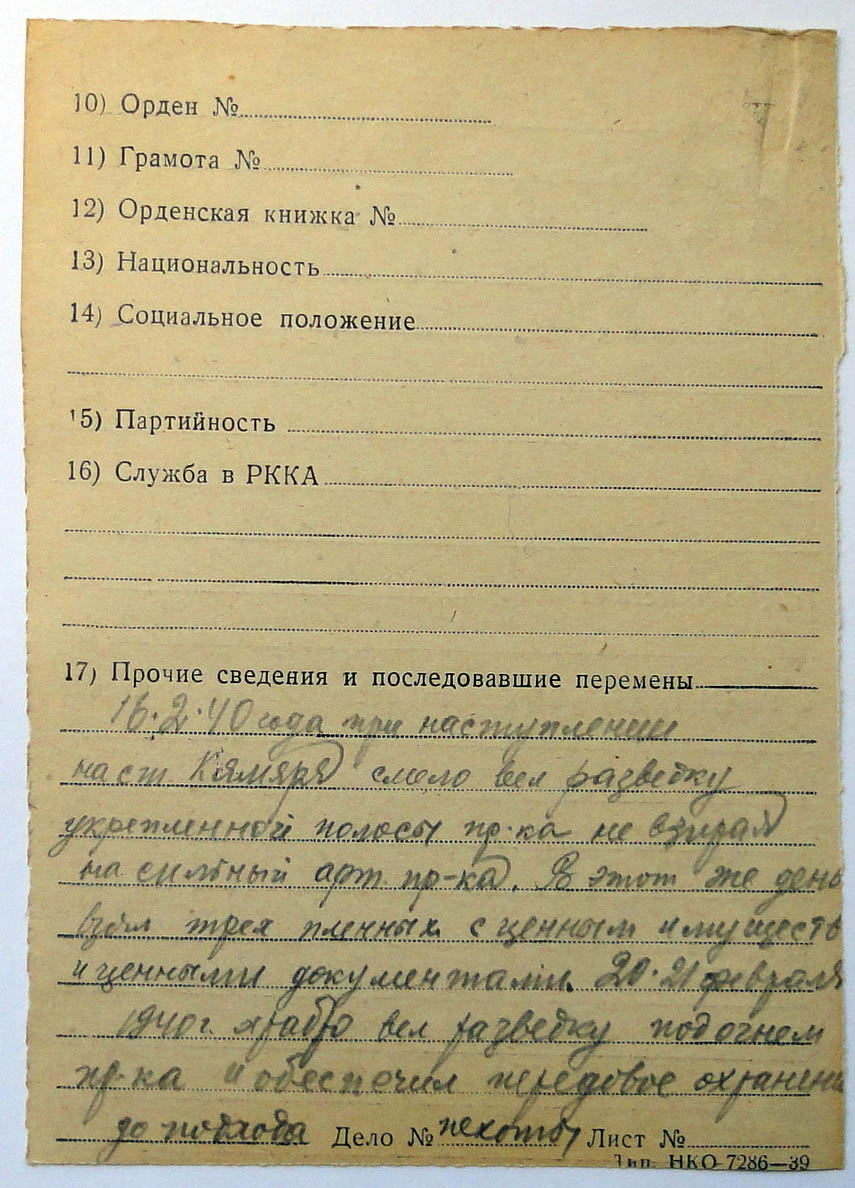 10) Орден №
11) Грамота №
12) Орденская книжка №
13) Национальность
14) Социальное положение
15) Партийность
16) Служба в РККА
17) Прочие сведения и последовавшие перемены
16.2.40 года при наступлении
на ст. Кямяря смело вел разведку
укрепленной полосы пр-ка не взирая
на сильный арт. пр-ка. В этот же день
взял трех пленных с ценным имуществ
и ценными документами. 20-21 февраля
1940 г. храбро вел разведку под огнем
пр-ка и обеспечил передовое охранени
до подхода Дело № пехоты Лист №
Тип. НКО 7286—39